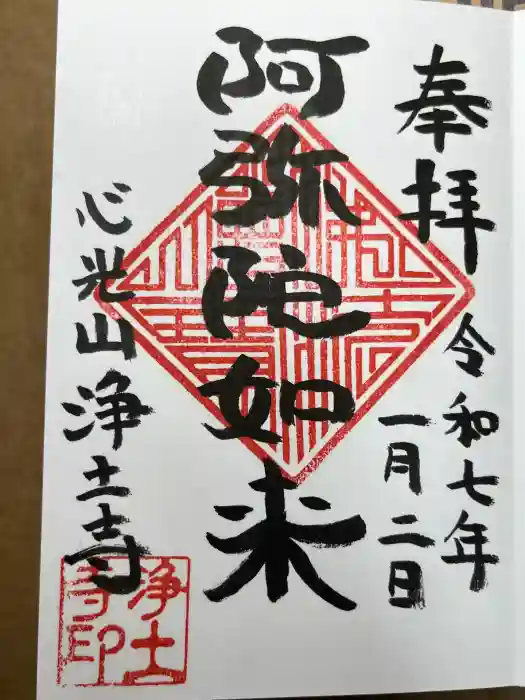 奉拝
令和七年
一月二日
阿弥陀如来
心光山
浄土寺
浄土
寺印